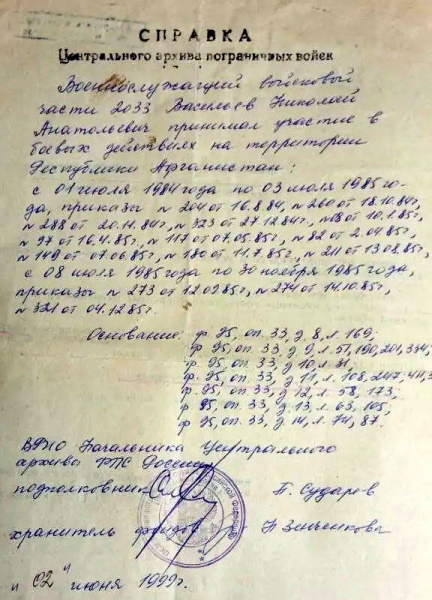 СПРАВКА
Центрального архива пограничных войск
Военнослужащий войсковой
части 2033 Васильев Николай
Анатольевич принимал участие в
боевых действиях на территории
Республики Афганистан:
с 01 июля 1984 года по 03 июля 1985 го-
да, приказы № 204 от 16.8.84, № 260 от 18.10.84г,
№ 288 от 20.11.84г, № 323 от 27.12.84г, №18 от 10.1.85г,
№ 97 от 16.4.85г, № 117 от 07.05.85г, № 82 от 2.04.85г,
№ 149 от 07.06.85г, № 180 от 11.7.85г, № 211 от 13.08.85г,
с 08 июля 1985 года по 30 ноября 1985 года,
приказы № 273 от 12.09.85г, № 274 от 14.10.85г,
№ 321 от 04.12.85г.
Основание: ф. 95, оп. 33, д. 8, л. 169;
ф. 95, оп. 33, д. 9, л. 57, 190, 201, 334;
ф. 95, оп. 33, д. 10, л. 31;
ф. 95, оп. 33, д. 11, л. 108, 247,
ф. 95, оп. 33, д. 12, л. 58, 173;
ф. 95, оп. 33, д. 13, л. 63, 105;
ф. 95, оп. 33, д. 14, л. 74, 87.
ВРИО Начальника Центрального
архива ФПС России
подполковник П. Сударев
хранитель фондов Н Зенченкова
" 02 " июня 1999г.